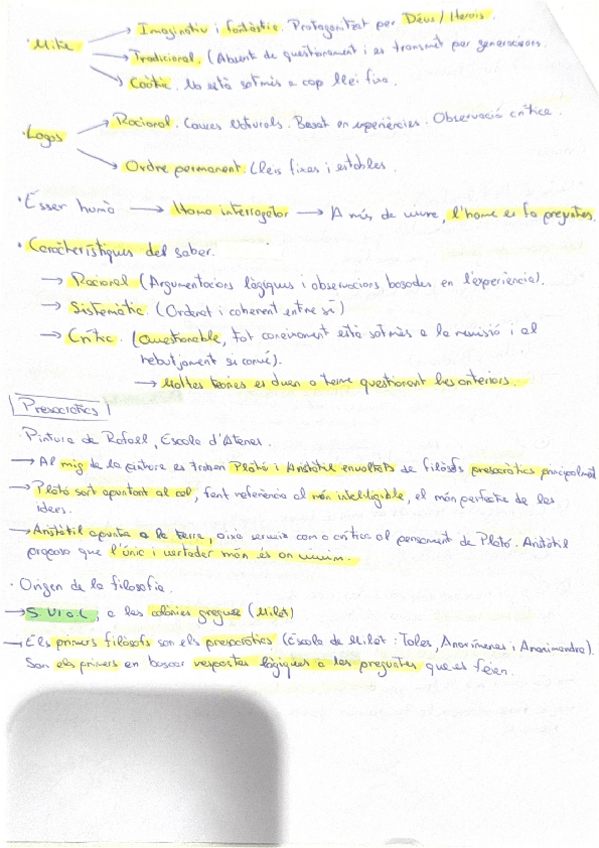 → Imaginatiu i fantàstic. Protagonitzat per Déus / Herois.
· Mite → Tradicional. (Absent de qüestionament i es transmet per generacions.
→ Caòtic. No està sotmès a cap llei fixa.
→ Racional. Causes Naturals. Basat en experiències. Observació crítica.
· Logos
→ Ordre permanent. Lleis fixes i estables.
· Ésser humà → Homo interrogator → A més de viure, l'home es fa preguntes.
· Característiques del saber.
→ Racional (Argumentacions lògiques i observacions basades en l'experiència).
→ Sistemàtic. (Ordenat i coherent entre si)
→ Crític. (Qüestionable, tot coneixement està sotmès a la revisió i al
rebutjament si convé).
→ Moltes teories es duen a terme qüestionant les anteriors.
| Presocràtics |
· Pintura de Rafael, Escola d'Atenes.
→ Al mig de la pintura es troben Plató i Aristòtil envoltats de filòsofs presocràtics principalment
→ Plató sort apuntant al cel, fent referència al món intel·ligible, el món perfecte de les
idees.
→ Aristòtil apunta a la terra, això serveix com a crítica al pensament de Plató. Aristòtil
proposa que l'únic i vertader món és on vivim.
· Origen de la filosofia.
→ S. VI a.C, a les colònies gregues (Milet)
→ Els primers filòsofs son els presocràtics (Escola de Milet: Tales, Anaxímenes i Anaximandre).
Son els primers en buscar respostes lògiques a les preguntes que es feien.